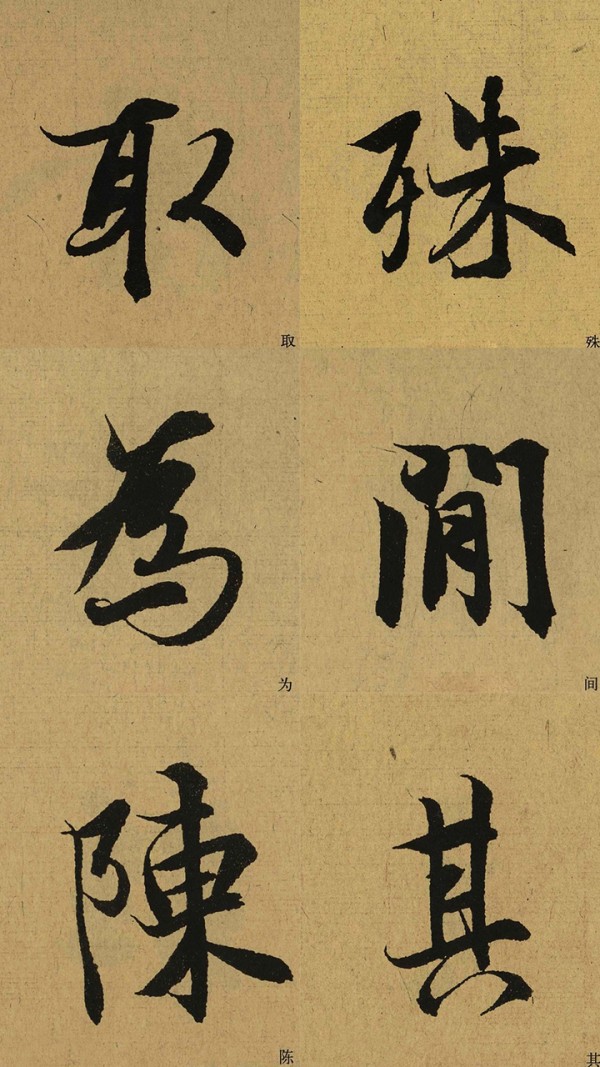 取 殊
取 殊
為 閒
为 间
陳 其
陈 其